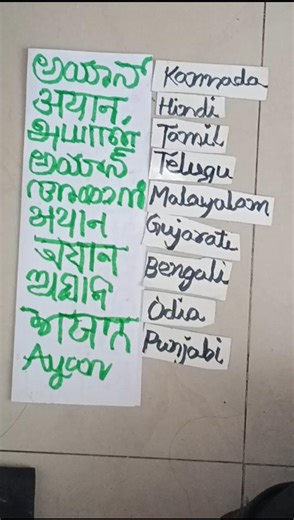 ಅಯಾನ್ Kannada
अयान, Hindi
அயான் Tamil
అయాన్ Telugu
അയാൻ Malayalam
અયાન Gujarati
অযান Bengali
ଅଯାନ Odia
Punjabi
Ayaan